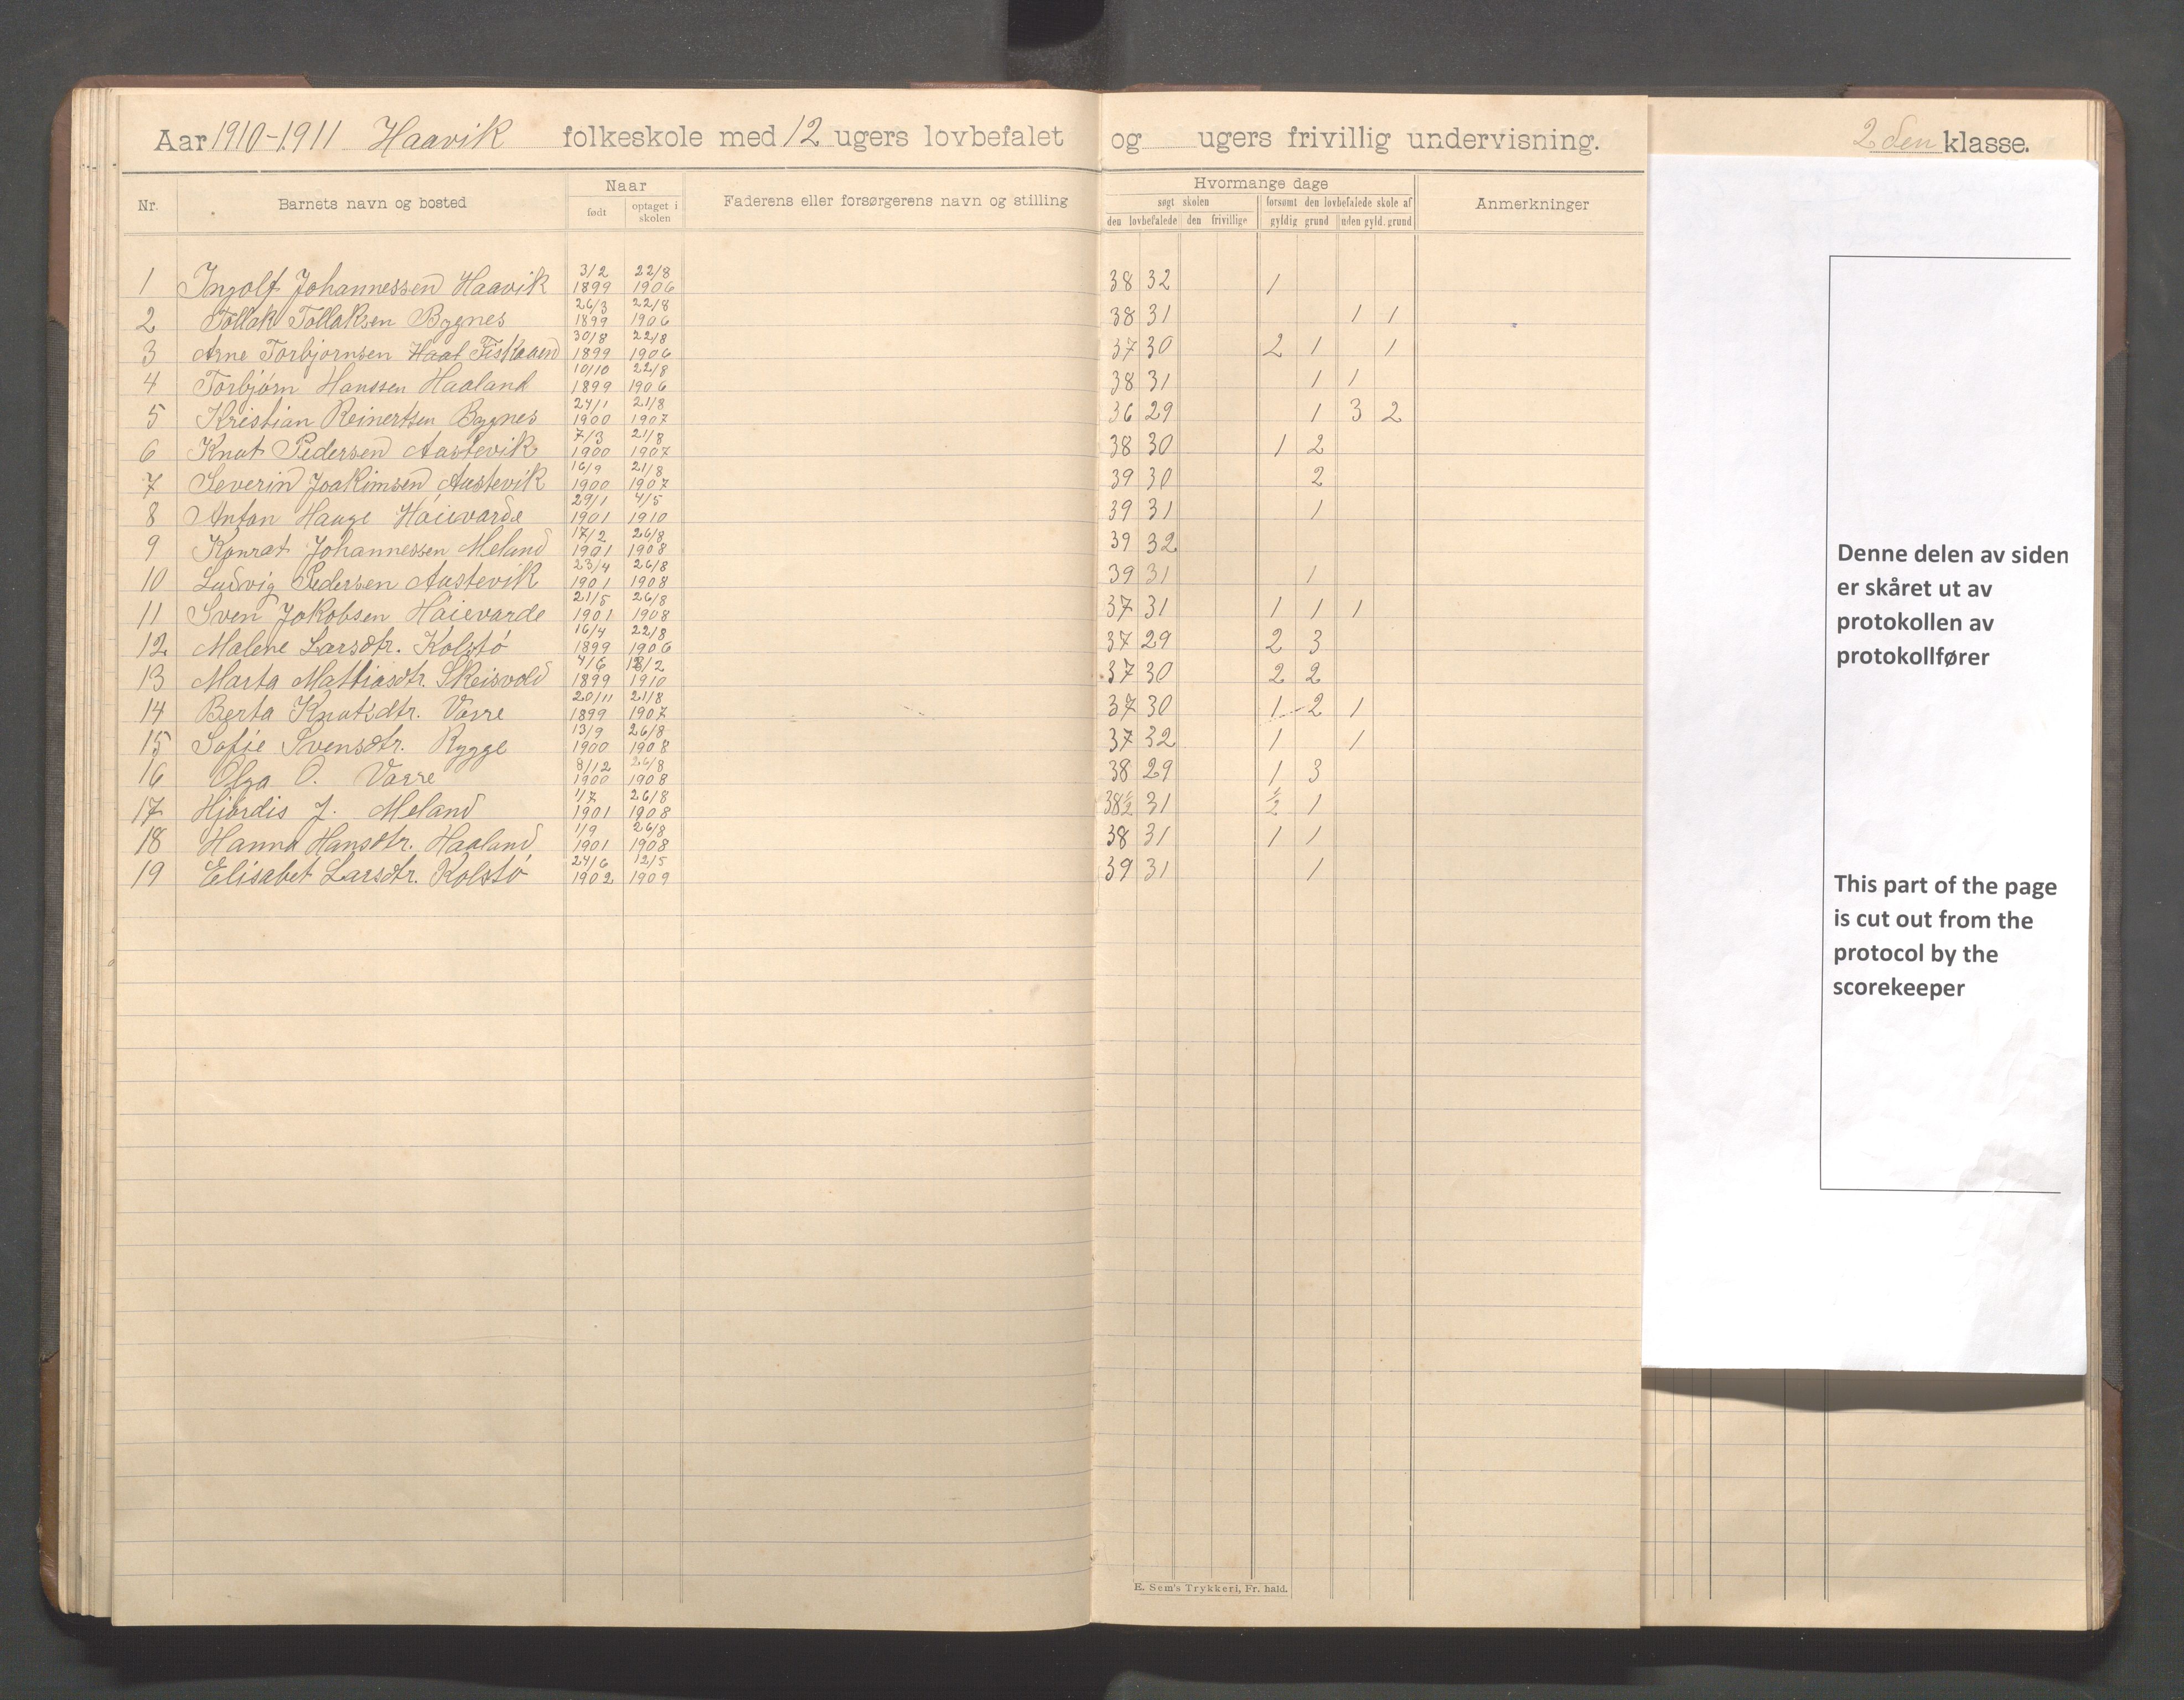 Aar 1910-1911 Haavik folkeskole med 12 ugers lovbefalet og ugers frivillig undervisning. 2den klasse.
Nr. Barnets navn og bosted Naar født optaget i skolen Faderens eller forsørgerens navn og stilling Hvormange dage søgt skolen den lovbefalede den frivillige forsømt den lovbefalede skole af gyldig grund uden gyld. grund Anmerkninger
1 Ingolf Johannessen Haavik 3/2 1899 22/8 1906 38 32 1
2 Tollak Tollaksen Bygnes 26/3 1899 22/8 1906 38 31 1 1
3 Arne Torbjørnsen Haal Fiskaaen 30/8 1899 22/8 1906 37 30 2 1 1
4 Torbjørn Hanssen Haaland 10/10 1899 22/8 1906 38 31 1 1
5 Kristian Reinertsen Bygnes 24/1 1900 21/8 1907 36 29 1 3 2
6 Knut Pedersen Aastevik 7/3 1900 21/8 1907 38 30 1 2
7 Severin Joakimsen Austevik 16/9 1900 21/8 1907 39 30 2
8 Anton Hauge Høievarde 29/1 1901 4/5 1910 39 31 1
9 Konrat Johannessen Meland 17/2 1901 26/8 1908 39 32
10 Ludvig Pedersen Austevik 23/4 1901 26/8 1908 39 31 1
11 Sven Jakobsen Høievarde 21/5 1901 26/8 1908 37 31 1 1 1
12 Malene Larsdtr. Kolstø 16/4 1899 22/8 1906 37 29 2 3
13 Marta Mattiasdtr. Skeisvold 4/6 1899 18/2 1910 37 30 2 2
14 Berta Knutsdtr. Vorre 20/11 1899 21/8 1907 37 30 1 2 1
15 Sofie Svensdtr. Rygge 13/9 1900 26/8 1908 37 32 1 1
16 Olga O. Vorre 8/12 1900 26/8 1908 38 29 1 3
17 Hjørdis J. Meland 1/7 1901 26/8 1908 38½ 31 ½ 1
18 Hanna Hansdtr. Haaland 1/9 1901 26/8 1908 38 31 1 1
19 Elisabet Larsdtr. Kolstø 24/6 1902 12/5 1909 39 31 1
E. Sem's Trykkeri, Fr. hald.
Denne delen av siden
er skåret ut av
protokollen av
protokollfører
This part of the page
is cut out from the
protocol by the
scorekeeper